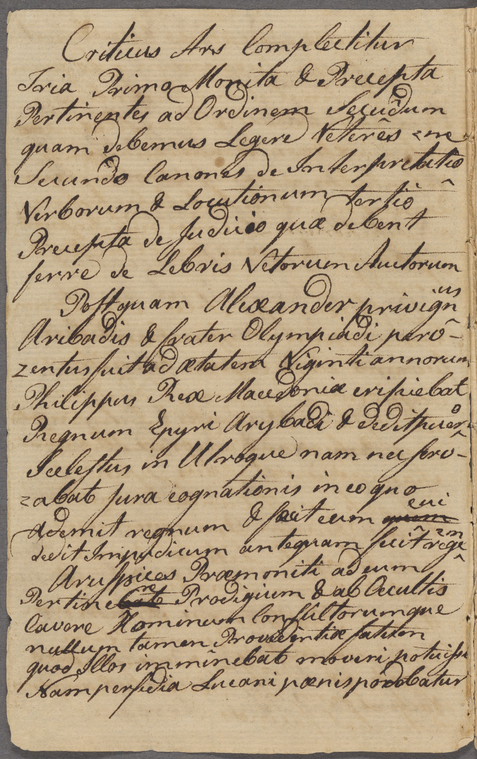 Criticus Ars Complectitur
Tria Primo Monita & Precepta
Pertinentes ad Ordinem Secūdum
quam debemus Legere Veteres
Secundo Canones de Interpretatiō
Verborum & Locutionum tertiō
Precepta de Judicio quæ debent
ferre de Lebris Vetorum Auctorum
Postquam Alexander privignus
Aribadis & frater Olympiadi
fuit ad ætatem Viginti annorum
Philippus Rex Macedoniæ eripiebat
Regnum Epyri Arybadi & dedit puero
Scelestus in Utroque nam nec
jura cognationis in eo quo
ademit regnum & fecit eum quem cui
dedit Impudicum antequam fecit regē
Aruspices Præmoniti ad eum
Prodigium & ab Occultis
Cavere Hominum Consultorumque
nullum tamen Providentiæ fatum
quod Illos imminebat moveri potuisse
Nam perfidia Lucani pænis parabatur